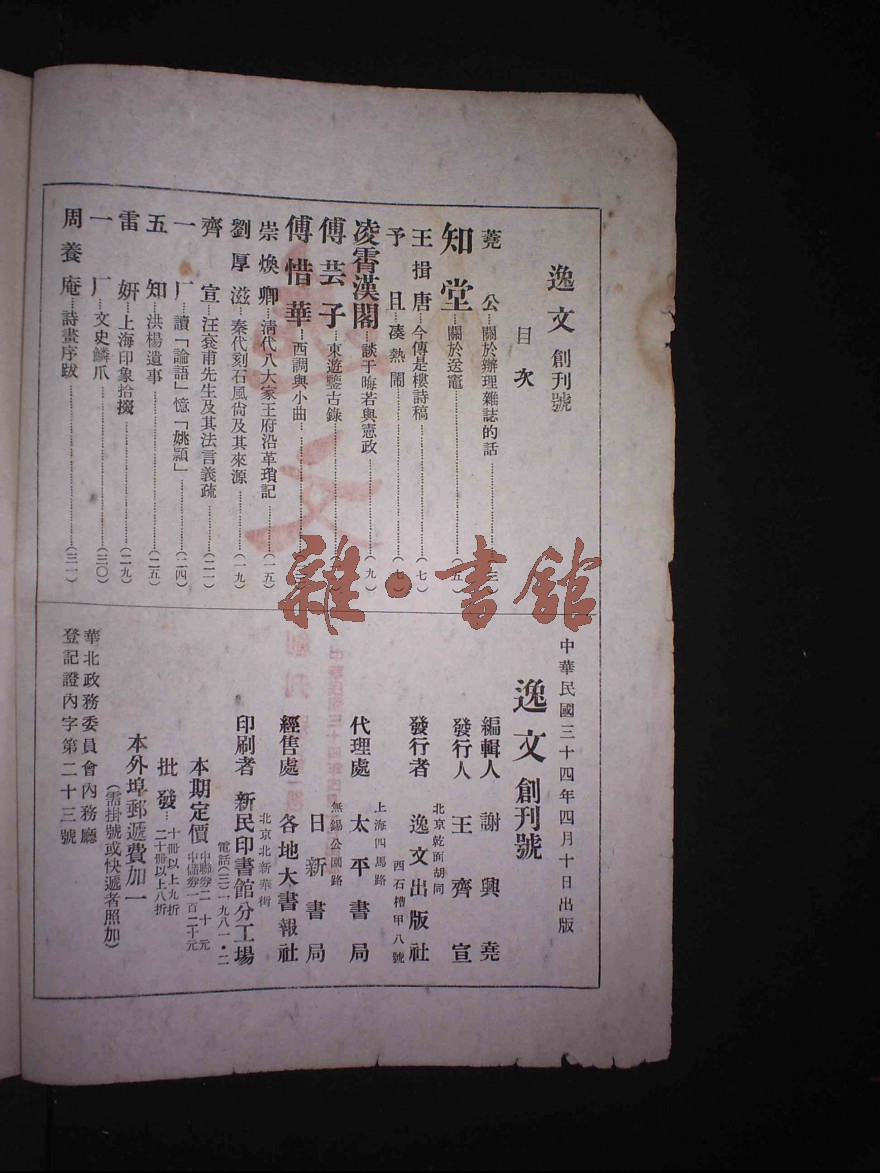 逸文 創刊號
目次
堯公…關於辦理雜誌的話
知堂…關於送竈…(五)
王揖唐…今傳是樓詩稿…(七)
予且…湊熱鬧…(七)
凌霄漢閣…談于晦若與憲政…(九)
傅芸子…東遊鑒古錄
傅惜華…西調與小曲
崇煥卿…清代八大家王府沿革瑣記…(一五)
劉厚滋…秦代刻石風尙及其來源…(一九)
齊宣…汪袞甫先生及其法言義疏…(二一)
一厂…讀「論語」憶「姚穎」…(二四)
五知…洪楊遺事…(二五)
雷妍…上海印象拾掇…(二九)
一厂…文史鱗爪…(三〇)
周養庵…詩畫序跋…(三一)
中華民國三十四年四月十日出版
逸文 創刊號
編輯人 謝興堯
發行人 王齊宣
北京乾面胡同
發行者 逸文出版社
西石槽甲八號
上海四馬路
代理處 太平書局
無錫公園路
日新書局
經售處 各地大書報社
北京北新華街
印刷者 新民印書館分工場
電話(三)一九八一・二
本期定價 中聯券二十元
中儲券一百二十元
批發…十冊以上九折
二十冊以上八折
本外埠郵遞費加一
(需掛號或快遞者照加)
華北政務委員會內務廳
登記證內字第二十三號
雜・書館